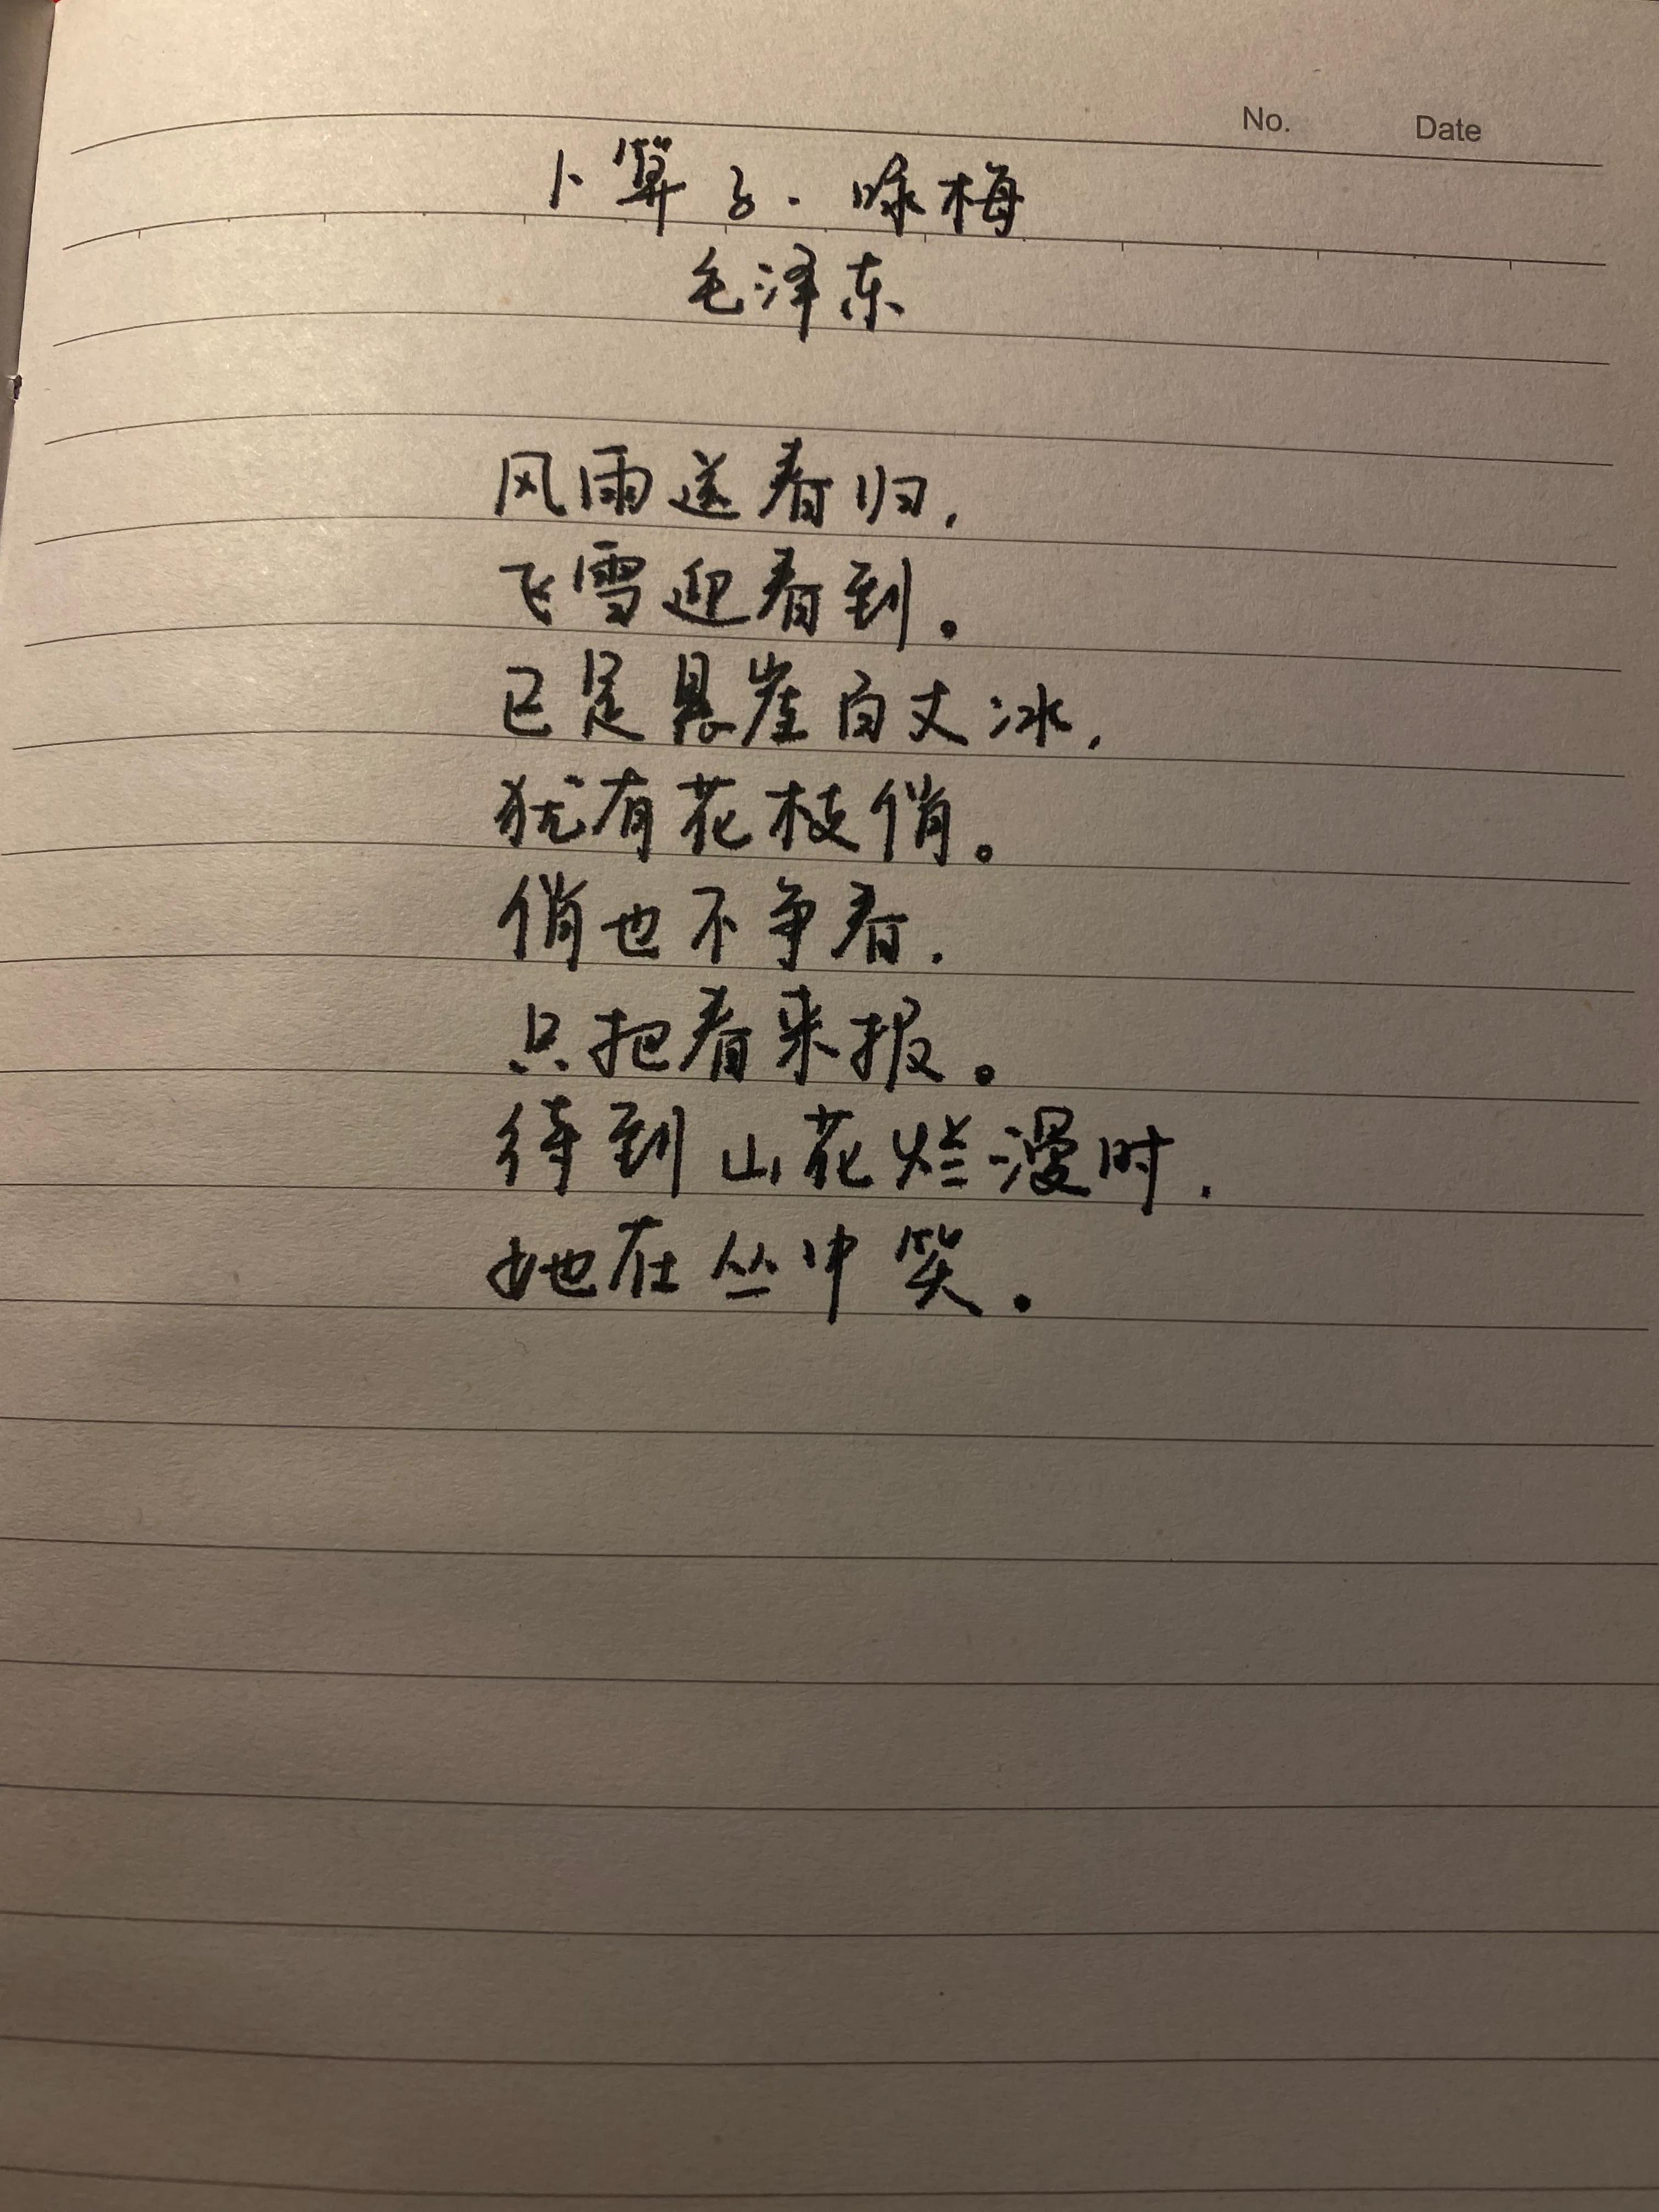 No. Date
卜算子·咏梅
毛泽东
风雨送春归,
飞雪迎春到。
已是悬崖百丈冰,
犹有花枝俏。
俏也不争春,
只把春来报。
待到山花烂漫时,
她在丛中笑。